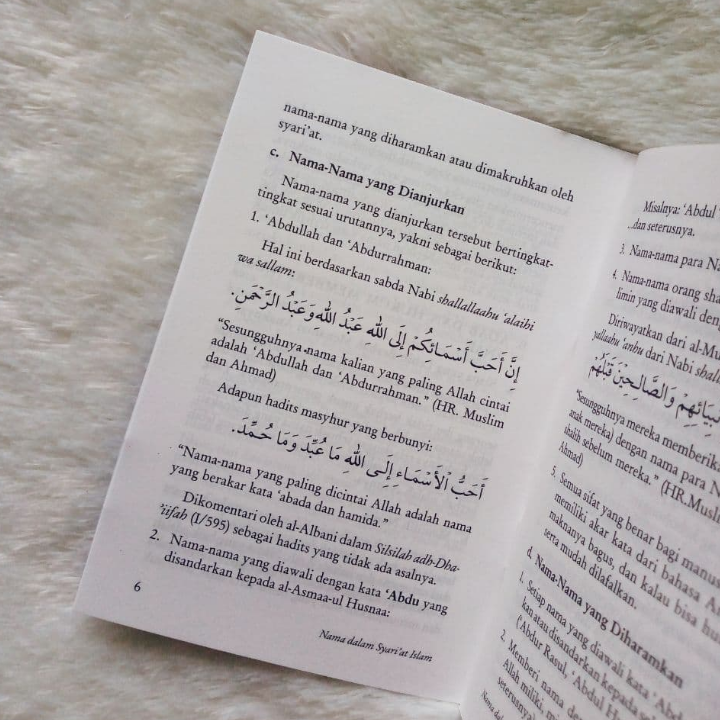 nama-nama yang diharamkan atau dimakruhkan oleh
syari'at.
c. Nama-Nama yang Dianjurkan
Nama-nama yang dianjurkan tersebut bertingkat-
tingkat sesuai urutannya, yakni sebagai berikut:
1. 'Abdullah dan 'Abdurrahman:
Hal ini berdasarkan sabda Nabi shallallaahu 'alaihi
wa sallam:
إِنَّ أَحَبَّ أَسْمَائِكُمْ إِلَى اللهِ عَبْدُ اللهِ وَعَبْدُ الرَّحْمَنِ.
"Sesungguhnya nama kalian yang paling Allah cintai
adalah 'Abdullah dan 'Abdurrahman." (HR. Muslim
dan Ahmad)
Adapun hadits masyhur yang berbunyi:
أَحَبُّ الْأَسْمَاءِ إِلَى اللهِ مَا عُبِّدَ وَمَا حُمِّدَ.
"Nama-nama yang paling dicintai Allah adalah nama
yang berakar kata 'abada dan hamida."
Dikomentari oleh al-Albani dalam Silsilah adh-Dha-
'iifah (I/595) sebagai hadits yang tidak ada asalnya.
2. Nama-nama yang diawali dengan kata 'Abdu yang
disandarkan kepada al-Asmaa-ul Husnaa:
6
Nama dalam Syari'at Islam
Misalnya: 'Abdul
dan seterusnya.
3. Nama-nama para
4. Nama-nama orang
limin yang diawali
Diriwayatkan dari
'anhu dari Nabi
وَالصَّالِحِيْنَ قَبْلَهُمْ
"Sesungguhnya mereka
anak mereka) dengan nama para
shalih sebelum mereka." (HR. Muslim
Ahmad)
5. Semua sifat yang benar bagi
memiliki akar kata dari bahasa
maknanya bagus, dan kalau bisa
serta mudah dilafalkan.
d. Nama-Nama yang Diharamkan
1. Setiap nama yang diawali kata
kan atau disandarkan kepada
('Abdur Rasul, 'Abdul
2. Memberi nama
Allah miliki,
seterusnya